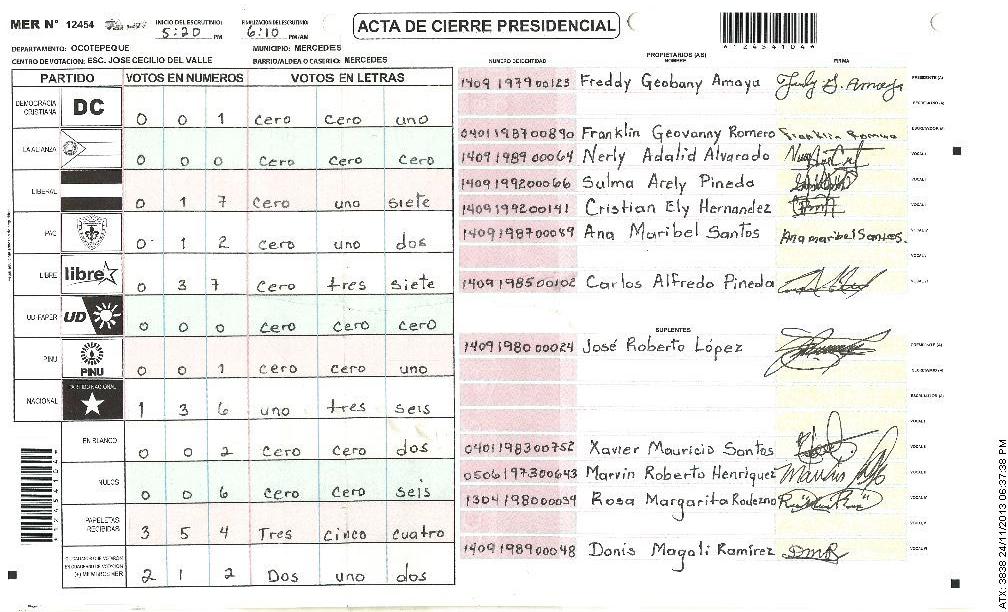 MER N° 12454 INICIO DEL ESCRUTINIO: 5:20 PM FINALIZACION DEL ESCRUTINIO: 6:10 PM/AM ACTA DE CIERRE PRESIDENCIAL
DEPARTAMENTO: OCOTEPEQUE MUNICIPIO: MERCEDES
CENTRO DE VOTACION: ESC. JOSE CECILIO DEL VALLE BARRIO/ALDEA O CASERIO: MERCEDES
PARTIDO VOTOS EN NUMEROS VOTOS EN LETRAS
DEMOCRACIA CRISTIANA DC 0 0 1 cero cero uno
LA ALIANZA 0 0 0 cero cero cero
LIBERAL 0 1 7 cero uno siete
PAC 0 1 2 cero uno dos
LIBRE libre 0 3 7 cero tres siete
UD FAPER UD 0 0 0 cero cero cero
PINU PINU 0 0 1 cero cero uno
NACIONAL PARTIDO NACIONAL 1 3 6 uno tres seis
EN BLANCO 0 0 2 cero cero dos
NULOS 0 0 6 cero cero seis
PAPELETAS RECIBIDAS 3 5 4 Tres cinco cuatro
(+) MIEMBROS MER 2 1 2 Dos uno dos
PROPIETARIOS (AS)
NUMERO DE IDENTIDAD NOMBRE FIRMA
1409 1979 00123 Freddy Geobany Amaya PRESIDENTE (A)
SECRETARIO (A)
0401198700890 Franklin Geovanny Romero Franklin Romero ESCRUTADOR (A)
1409 1989 00064 Nerly Adalid Alvarado VOCAL I
1409199200066 Salma Arely Pineda
1409199200141 Cristian Ely Hernandez
1409198700089 Ana Maribel Santos Ana maribel Santos.
1409198500102 Carlos Alfredo Pineda
SUPLENTES
1409 1980 00024 José Roberto López
SECRETARIO (A)
ESCRUTADOR (A)
0401198300752 Xavier Mauricio Santos
0506197300643 Marvin Roberto Henriquez
1304198000039 Rosa Margarita Rodezno
1409198900048 Donis Magali Ramírez DMR
ATX: 3838 24/11/2013 06:37:38 PM